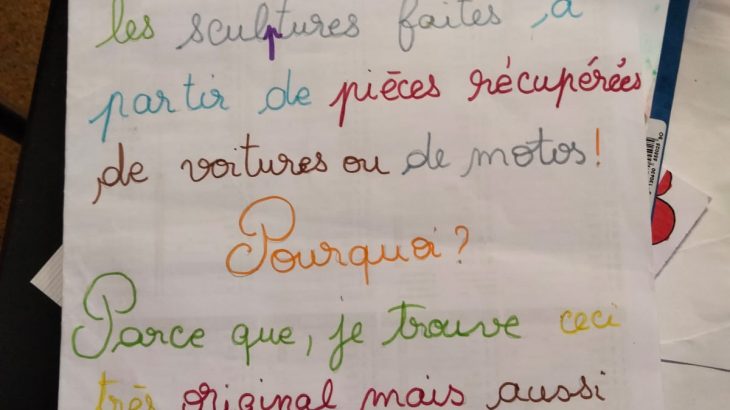 les sculptures faites à
partir de pièces récupérées
de voitures ou de motos!
Pourquoi?
Parce que, je trouve ceci
très original mais aussi